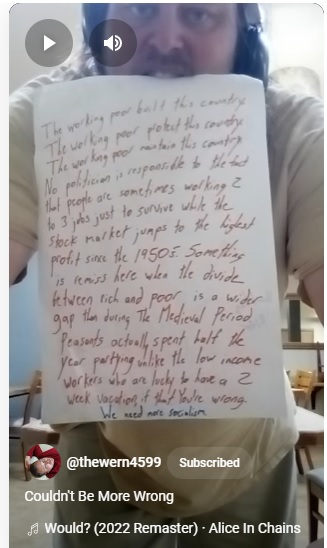 The working poor built this country
The working poor protect this country
The working poor maintain this country.
No politician is responsible to the fact
that people are sometimes working 2
to 3 jobs just to survive while the
stock market jumps to the highest
profit since the 1950s. Something
is remiss here when the divide
between rich and poor is a wider
gap than during The Medieval Period
Peasants actually spent half the
year partying unlike the low income
workers who are lucky to have a 2
week vacation, if that You're wrong.
We need more socialism
@thewern4599 Subscribed
Couldn't Be More Wrong
Would? (2022 Remaster) · Alice In Chains